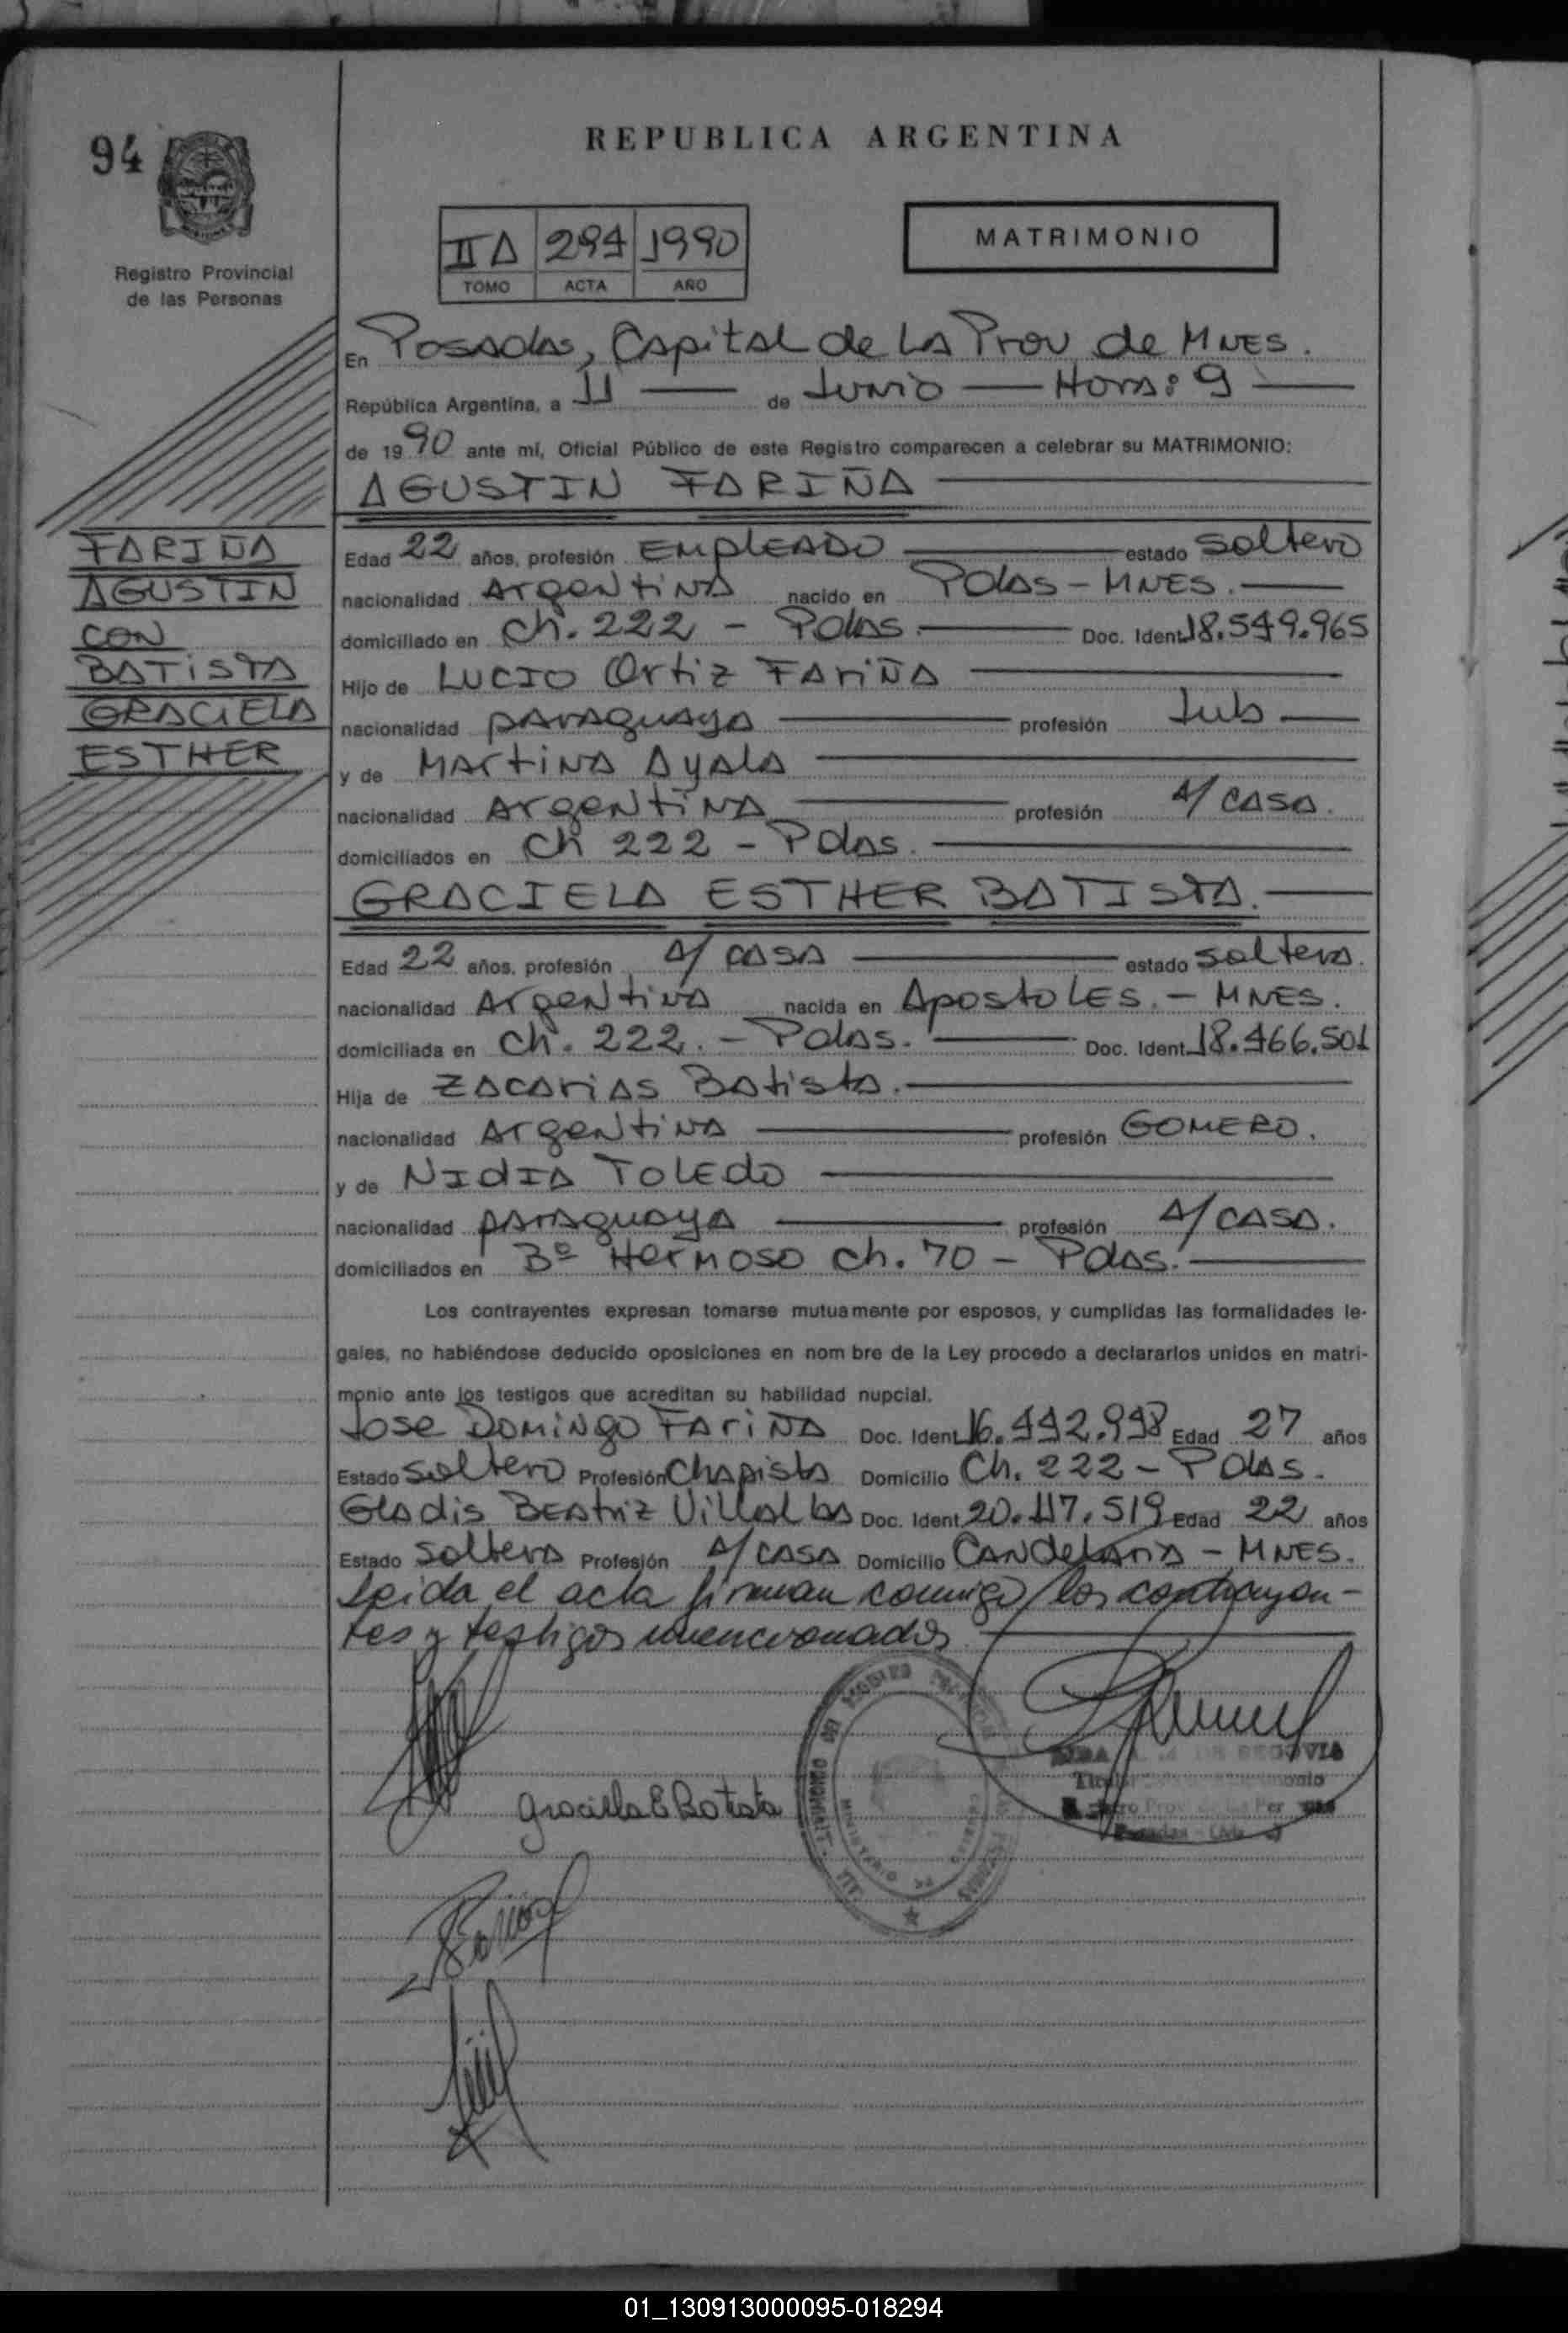 94
Registro Provincial
de las Personas
REPUBLICA ARGENTINA
IIA 294 1990
TOMO ACTA AÑO
MATRIMONIO
En Posadas, Capital de La Prov de Mnes.
República Argentina, a 11 de Junio Hora: 9
de 1990 ante mí, Oficial Público de este Registro comparecen a celebrar su MATRIMONIO:
AGUSTIN FARIÑA
FARIÑA
AGUSTIN
CON
BATISTA
GRACIELA
ESTHER
Edad 22 años, profesión Empleado estado soltero
nacionalidad Argentina nacido en Pdas - Mnes.
domiciliado en Ch. 222 - Pdas. Doc. Ident 18.549.965
Hijo de Lucio Ortiz Fariña
nacionalidad paraguaya profesión Jub
y de Martina Ayala
nacionalidad Argentina profesión A/ casa.
domiciliados en Ch 222 - Pdas.
GRACIELA ESTHER BATISTA.
Edad 22 años, profesión A/ casa estado soltera.
nacionalidad Argentina nacida en Apostoles. - Mnes.
domiciliada en Ch. 222. - Pdas. Doc. Ident. 18.466.501
Hija de Zacarias Batista.
nacionalidad Argentina profesión Gomero.
y de Nidia Toledo
nacionalidad paraguaya profesión A/ casa.
domiciliados en Bº Hermoso ch. 70 - Pdas.
Los contrayentes expresan tomarse mutuamente por esposos, y cumplidas las formalidades le-
gales, no habiéndose deducido oposiciones en nom bre de la Ley procedo a declararlos unidos en matri-
monio ante los testigos que acreditan su habilidad nupcial.
Jose Domingo Fariña Doc. Ident. 16.442.998 Edad 27 años
Estado soltero Profesión Chapista Domicilio Ch. 222 - Pdas.
Gladis Beatriz Villalba Doc. Ident. 20.117.519 Edad 22 años
Estado soltera Profesión A/ casa Domicilio Candelaria - Mnes.
Leida el acta firman conmigo los contrayen-
tes y testigos mencionados
Graciela E Batista
DE SEGOVIA
01_130913000095-018294